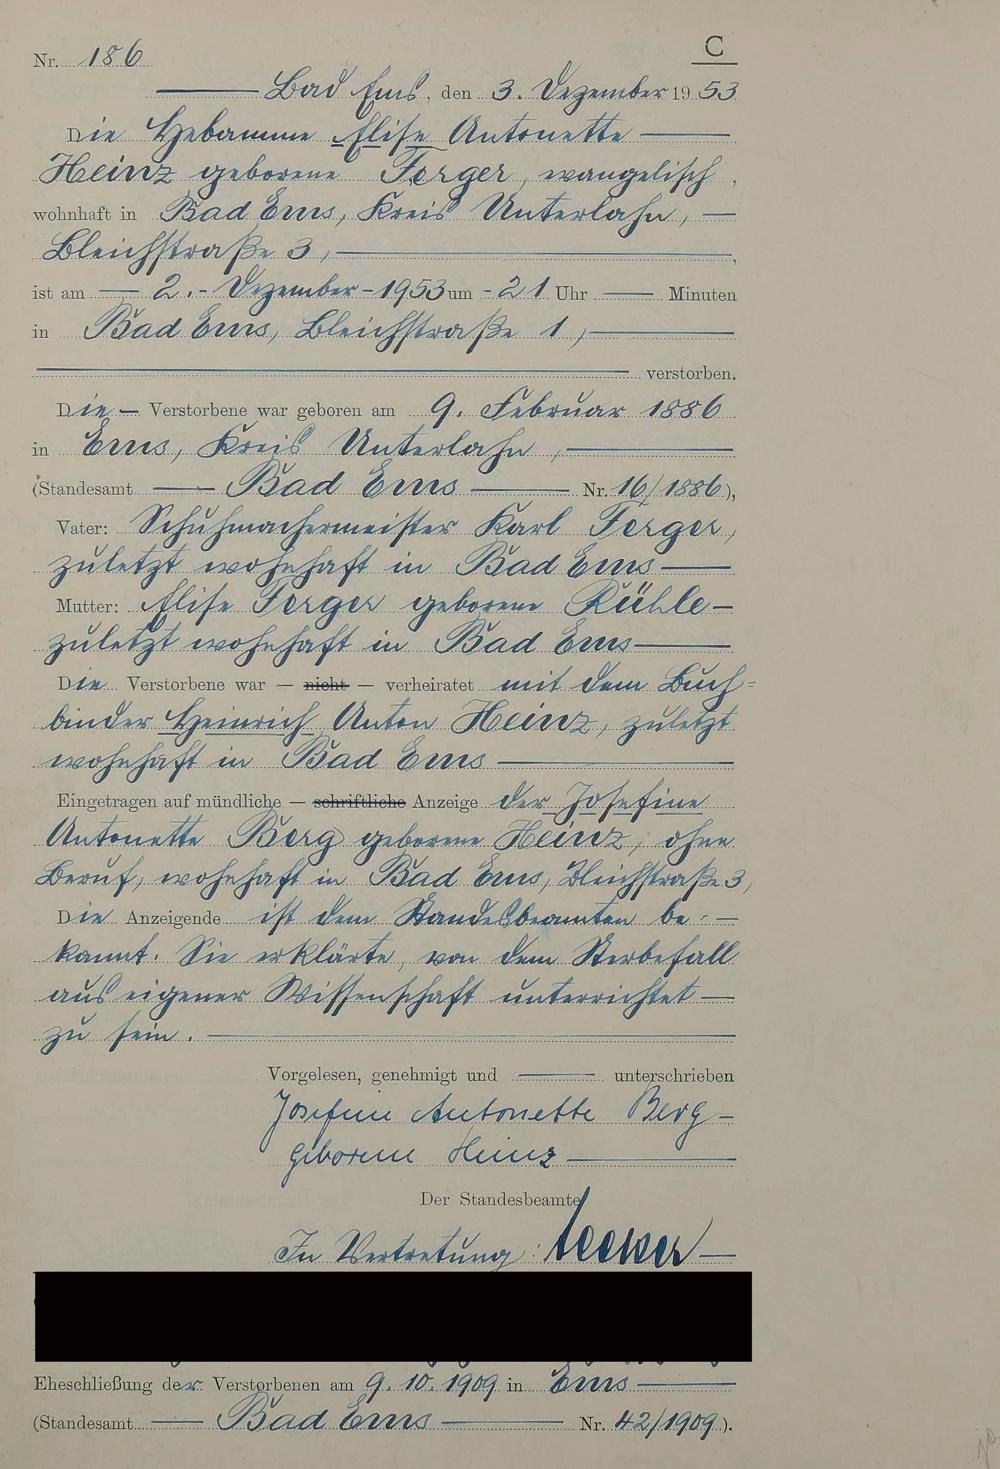 C
Nr. 186
Bad Ems, den 3. Dezember 1953
Die Hebamme Elise Antonette
Heinz geborene Ferger, evangelisch,
wohnhaft in Bad Ems, Kreis Unterlahn,
Bleichstraße 3,
ist am 2. Dezember 1953 um 21 Uhr Minuten
in Bad Ems, Bleichstraße 1,
verstorben.
Die Verstorbene war geboren am 9. Februar 1886
in Ems, Kreis Unterlahn,
(Standesamt Bad Ems Nr. 16/1886),
Vater: Schuhmachermeister Karl Ferger,
zuletzt wohnhaft in Bad Ems
Mutter: Elise Ferger geborene Rühle
zuletzt wohnhaft in Bad Ems
Die Verstorbene war — nicht — verheiratet mit dem Buch=
binder Heinrich Anton Heinz, zuletzt
wohnhaft in Bad Ems
Eingetragen auf mündliche — schriftliche Anzeige der Josefine
Antonette Berg geborene Heinz, ohne
Beruf, wohnhaft in Bad Ems, Bleichstraße 3,
Die Anzeigende ist dem Standesbeamten be=
kannt. Sie erklärte, von dem Sterbefall
aus eigener Wissenschaft unterrichtet
zu sein.
Vorgelesen, genehmigt und unterschrieben
Josefine Antonette Berg
geborene Heinz
Der Standesbeamte
In Vertretung:
Eheschließung der Verstorbenen am 9. 10. 1909 in Ems
(Standesamt Bad Ems Nr. 42/1909).